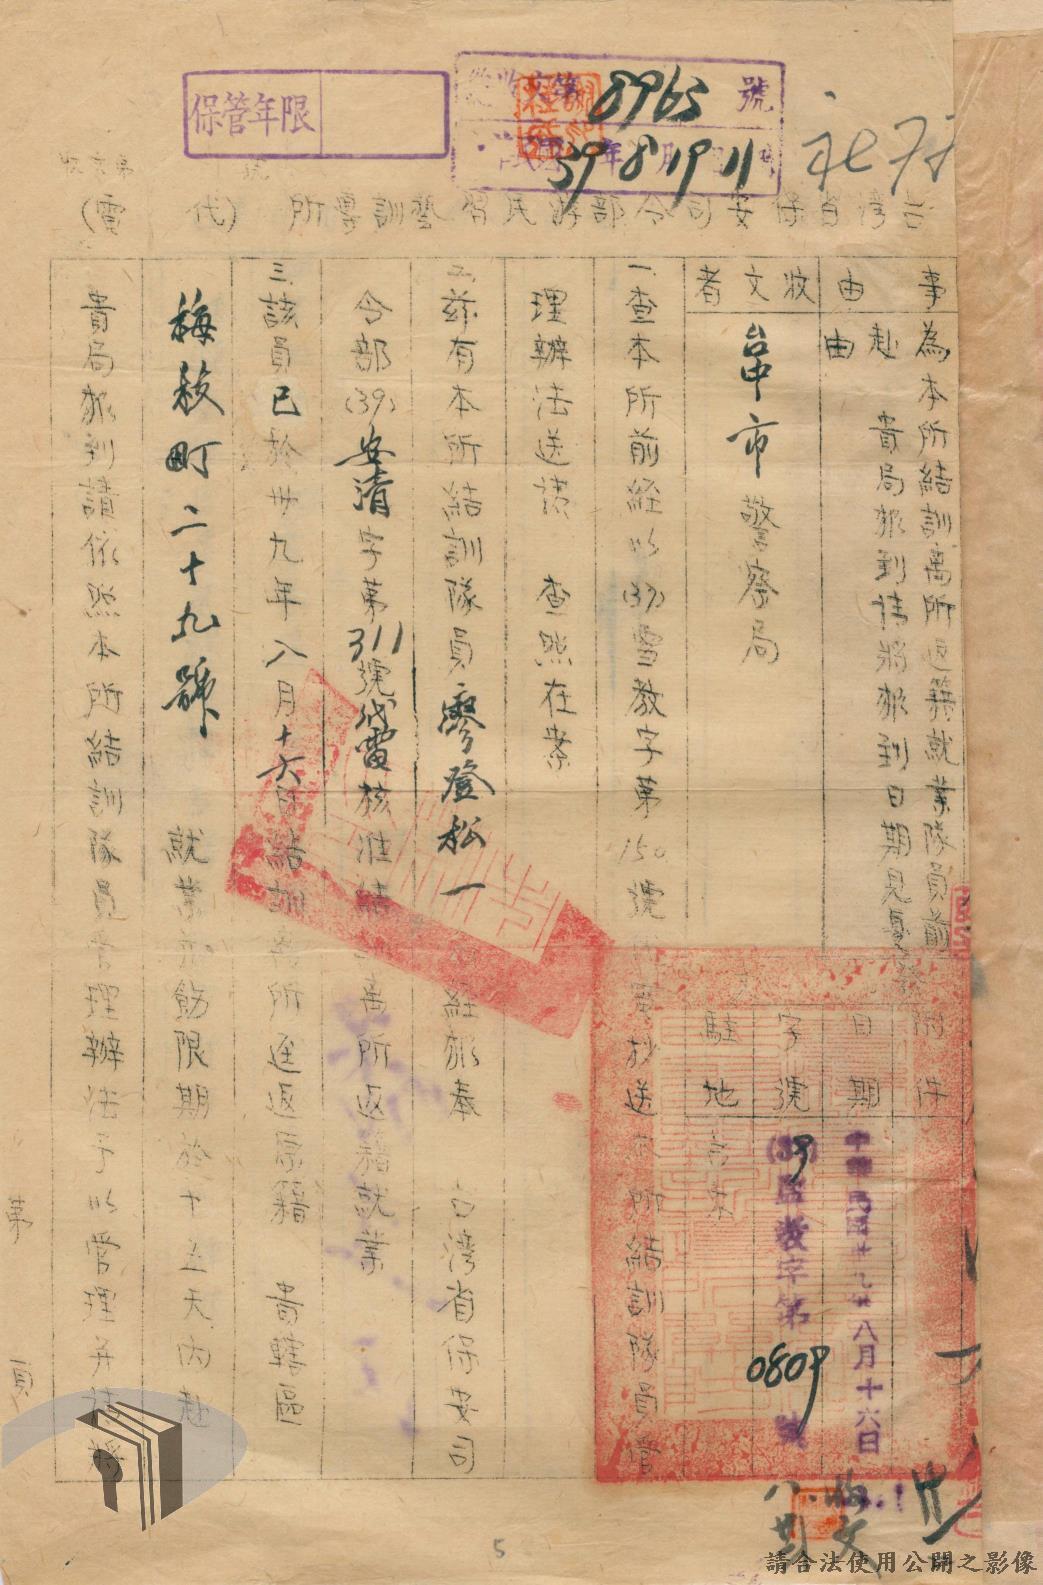 保管年限
收文第8965號
39年8月19日11時
台灣省保安司令部游民習藝訓導所 (代電)
事由
為本所結訓离所返籍就業隊員前赴
貴局報到請將報到日期見復由
收文者
台中市警察局
附件
日期
中華民國卅九年八月十六日
字號
(39)雪教字第0809號
駐地
台東
一、查本所前經以(39)雪教字第150號代電抄送本所結訓隊員管
理辦法送請 查照在案
二、茲有本所結訓隊員廖登松一 經報奉 台灣省保安司
令部(39)安清字第311號代電核准結訓离所返籍就業
三、該員已於卅九年八月十六日結訓离所逕返原籍 貴轄區
梅枝町二十九號 就業并飭限期於十五天內赴
貴局報到請依照本所結訓隊員管理辦法予以管理并請將
第 頁
5
請合法使用公開之影像